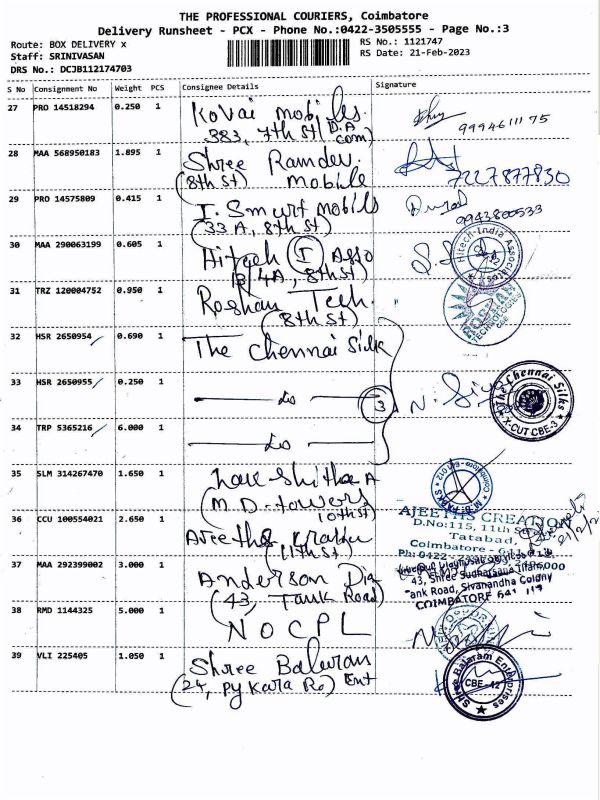 THE PROFESSIONAL COURIERS, Coimbatore
Delivery Runsheet - PCX - Phone No.:0422-3505555 - Page No.:3
Route: BOX DELIVERY x
Staff: SRINIVASAN
DRS No.: DCJB112174703
RS No.: 1121747
RS Date: 21-Feb-2023
S No Consignment No Weight PCS Consignee Details Signature
27 PRO 14518294 0.250 1 Kovai mobiles
383, 7th St (D.A com) 9994611175
28 MAA 568950183 1.895 1 Shree Ramdev
(8th St) mobile 7227877830
29 PRO 14575809 0.415 1 I. Smurt mobils
(33 A, 8th St) 9943800533
30 MAA 290063199 0.605 1 Hitech (I) Asso
4A, 8th St) Hitech India Associates
31 TRZ 120004752 0.950 1 Roshan Tech.
(8th St) ROSHAN TECHNOLOGIES CBE
32 HSR 2650954 0.690 1 The Chennai Silk
33 HSR 2650955 0.250 1 do 3 The Chennai Silks
X-CUT CBE-3
34 TRP 5365216 6.000 1 do
35 SLM 314267470 1.650 1
(M.D. towers
10th St)
36 CCU 100554021 2.650 1
(11th St)
AJEETHS CREATION
D.No:115, 11th St
Tatabad,
Coimbatore -
Ph: 0422 -
37 MAA 292399002 3.000 1 Anderson Dia
(43, Tank Road)
43, Shree Sudharsana
ank Road, Sivanandha Colony
COIMBATORE 641
38 RMD 1144325 5.000 1 NOCPL
39 VLI 225405 1.050 1 Shree Baluran
(24, Pykara Ro) Ent
Shree Balaram Enterprises
CBE-12